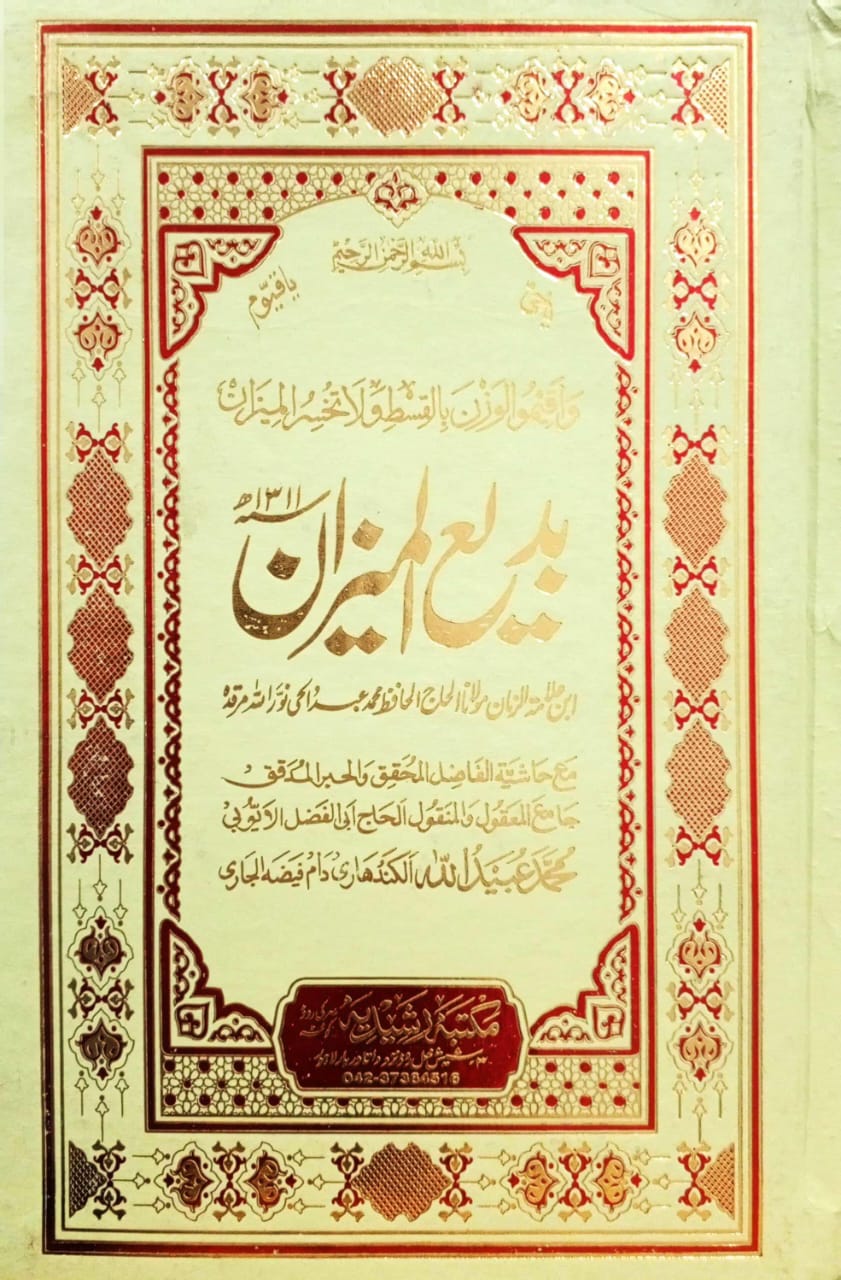 بسم الله الرحمن الرحيم
يا قيوم
واقيموا الوزن بالقسط ولا تخسروا الميزان
بديع الميزان
سنه ۱۳۱۱ھ
ابن علامۃ الزمان مولانا الحاج الحافظ محمد عبد الحی نوّر اللہ مرقدہ
مع حاشية الفاضل المحقق والحبر المدقق
جامع المعقول والمنقول الحاج ابى الفضل الايّوبي
محمّد عبيد الله الكندهاري دام فيضه الجاري
مکتبه رشیدیه سرکی روڈ
داتا دربار لاہور
042-37384516